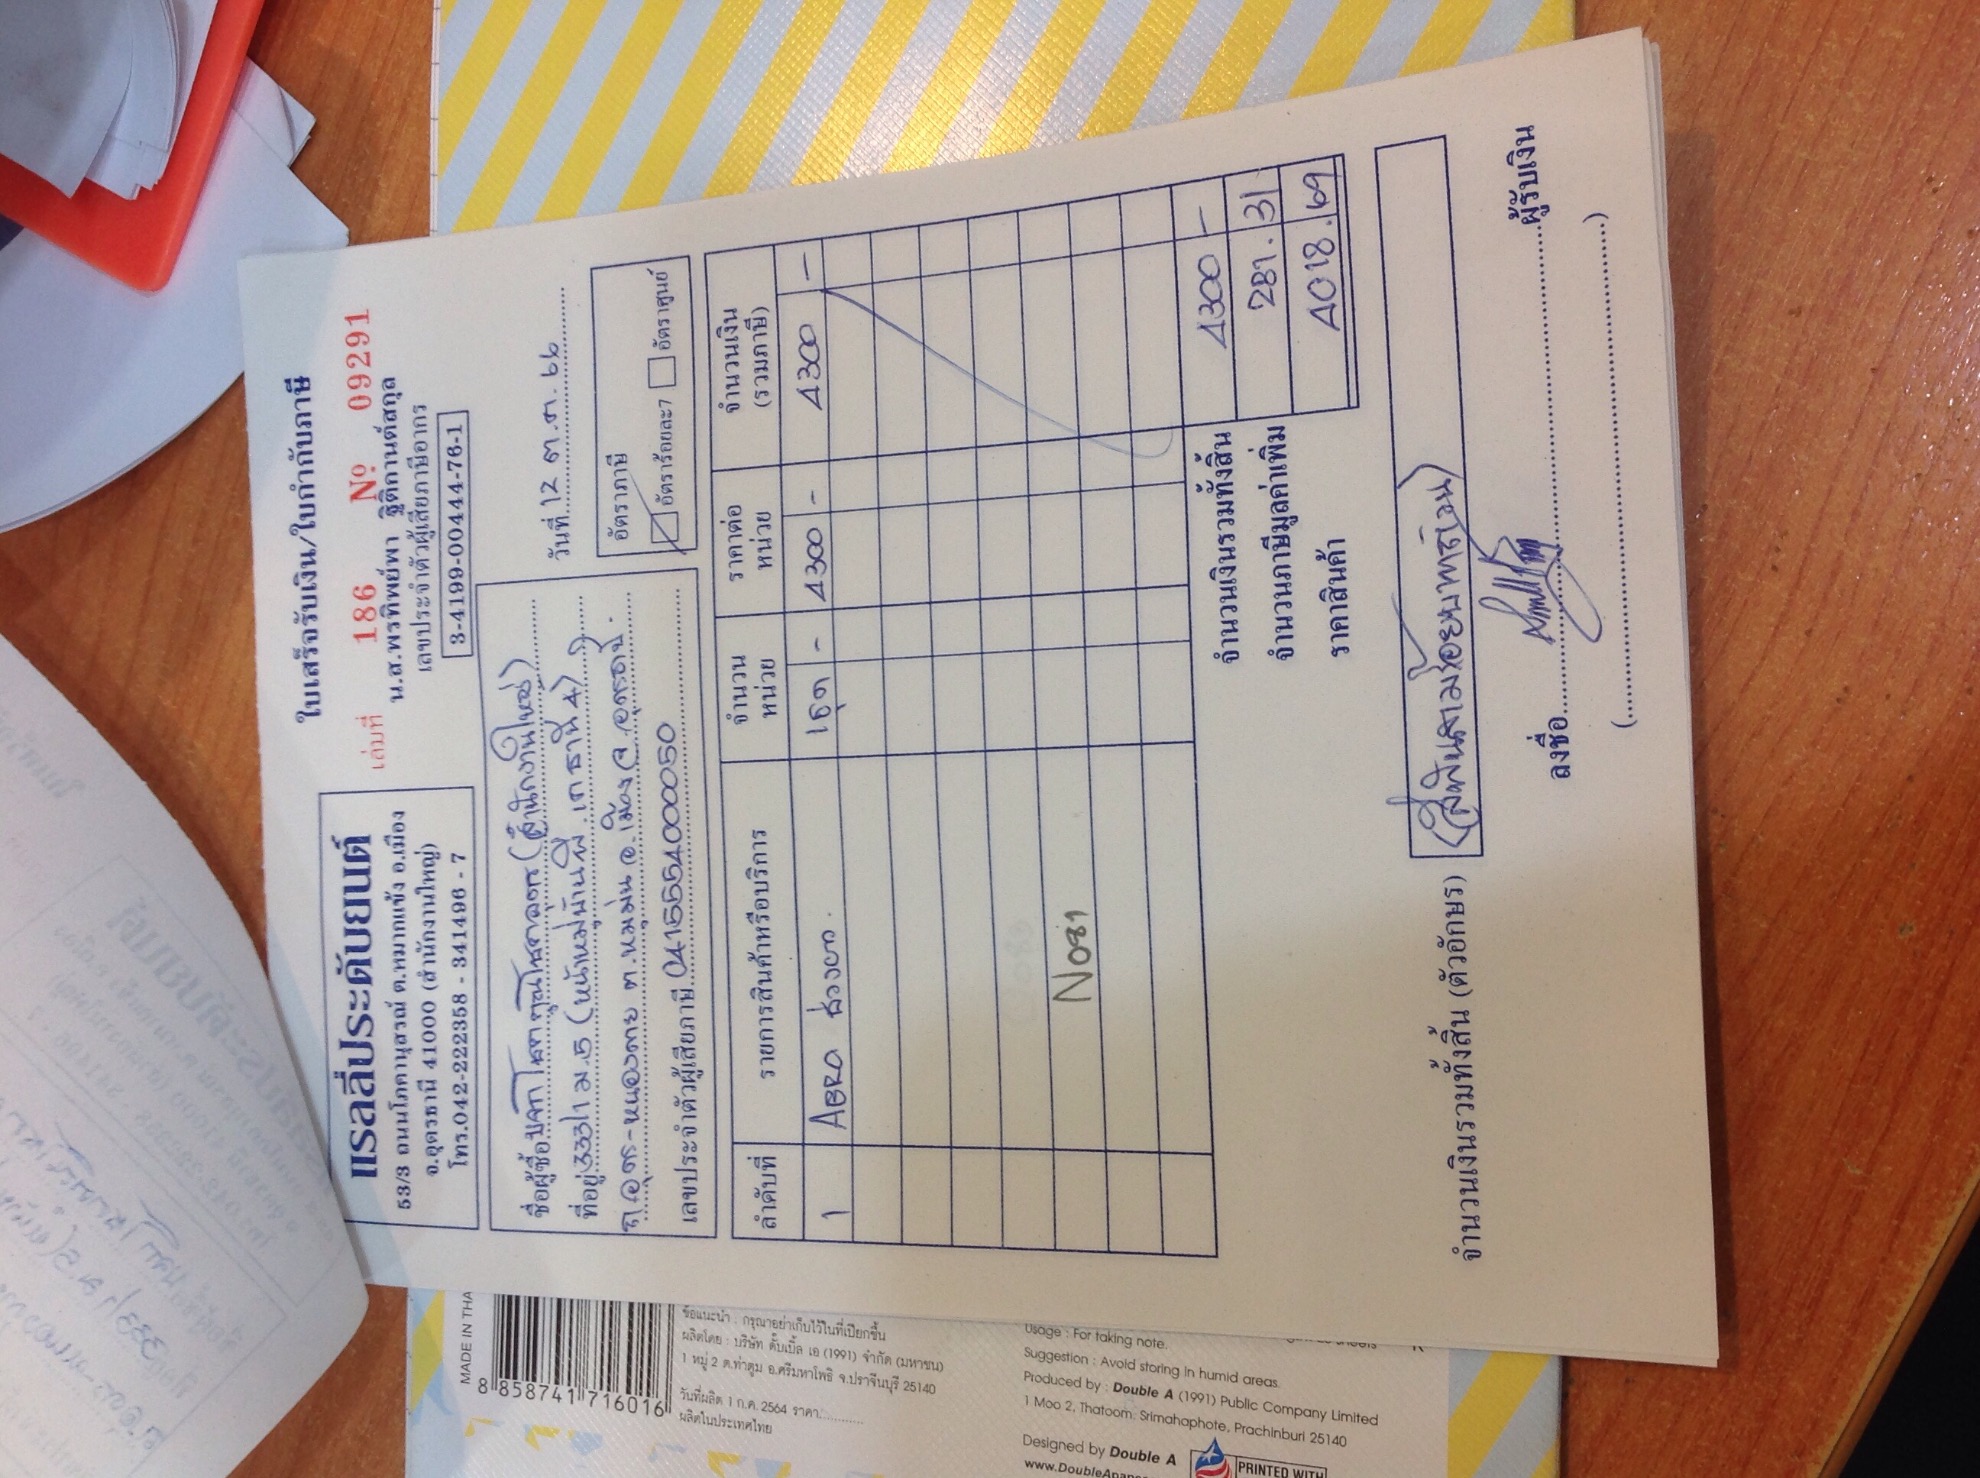 ใบเสร็จรับเงิน/ใบกำกับภาษี
แรลลี่ประดับยนต์
53/3 ถนนโภคานุสรณ์ ต.หมากแข้ง อ.เมือง
จ.อุดรธานี 41000 (สำนักงานใหญ่)
โทร.042-222358 - 341496 - 7
เล่มที่ 186 Nº 09291
น.ส.พรทิพย์พา ฐิติกานต์สกุล
เลขประจำตัวผู้เสียภาษีอากร
3-4199-00444-76-1
ชื่อผู้ซื้อ (สำนักงานใหญ่)
ที่อยู่ 333/1 ม.5 (หน้าหมู่บ้าน
ถ.อุดร-หนองคาย ต.หมูม่น อ.เมือง จ.อุดรธานี.
เลขประจำตัวผู้เสียภาษี 0415554000050
วันที่ 12 ต.ค. 66
อัตราภาษี
อัตราร้อยละ7 อัตราศูนย์
ลำดับที่ รายการสินค้าหรือบริการ จำนวนหน่วย ราคาต่อหน่วย จำนวนเงิน (รวมภาษี)
1 ABRO 1ชุด - 4300 - 4300 -
จำนวนเงินรวมทั้งสิ้น 4300 -
จำนวนภาษีมูลค่าเพิ่ม 281.31
ราคาสินค้า 4018.69
จำนวนเงินรวมทั้งสิ้น (ตัวอักษร) (สี่พันสามร้อยบาทถ้วน)
ลงชื่อ ผู้รับเงิน
MADE IN THA
8 858741 716016
ข้อแนะนำ : กรุณาอย่าเก็บไว้ในที่เปียกชื้น
ผลิตโดย : บริษัท ดั๊บเบิ้ล เอ (1991) จำกัด (มหาชน)
1 หมู่ 2 ต.ท่าตูม อ.ศรีมหาโพธิ จ.ปราจีนบุรี 25140
วันที่ผลิต 1 ก.ค. 2564 ราคา:
ผลิตในประเทศไทย
Usage : For taking note.
Suggestion : Avoid storing in humid areas.
Produced by : Double A (1991) Public Company Limited
1 Moo 2, Thatoom, Srimahaphote, Prachinburi 25140
Designed by Double A
PRINTED WITH